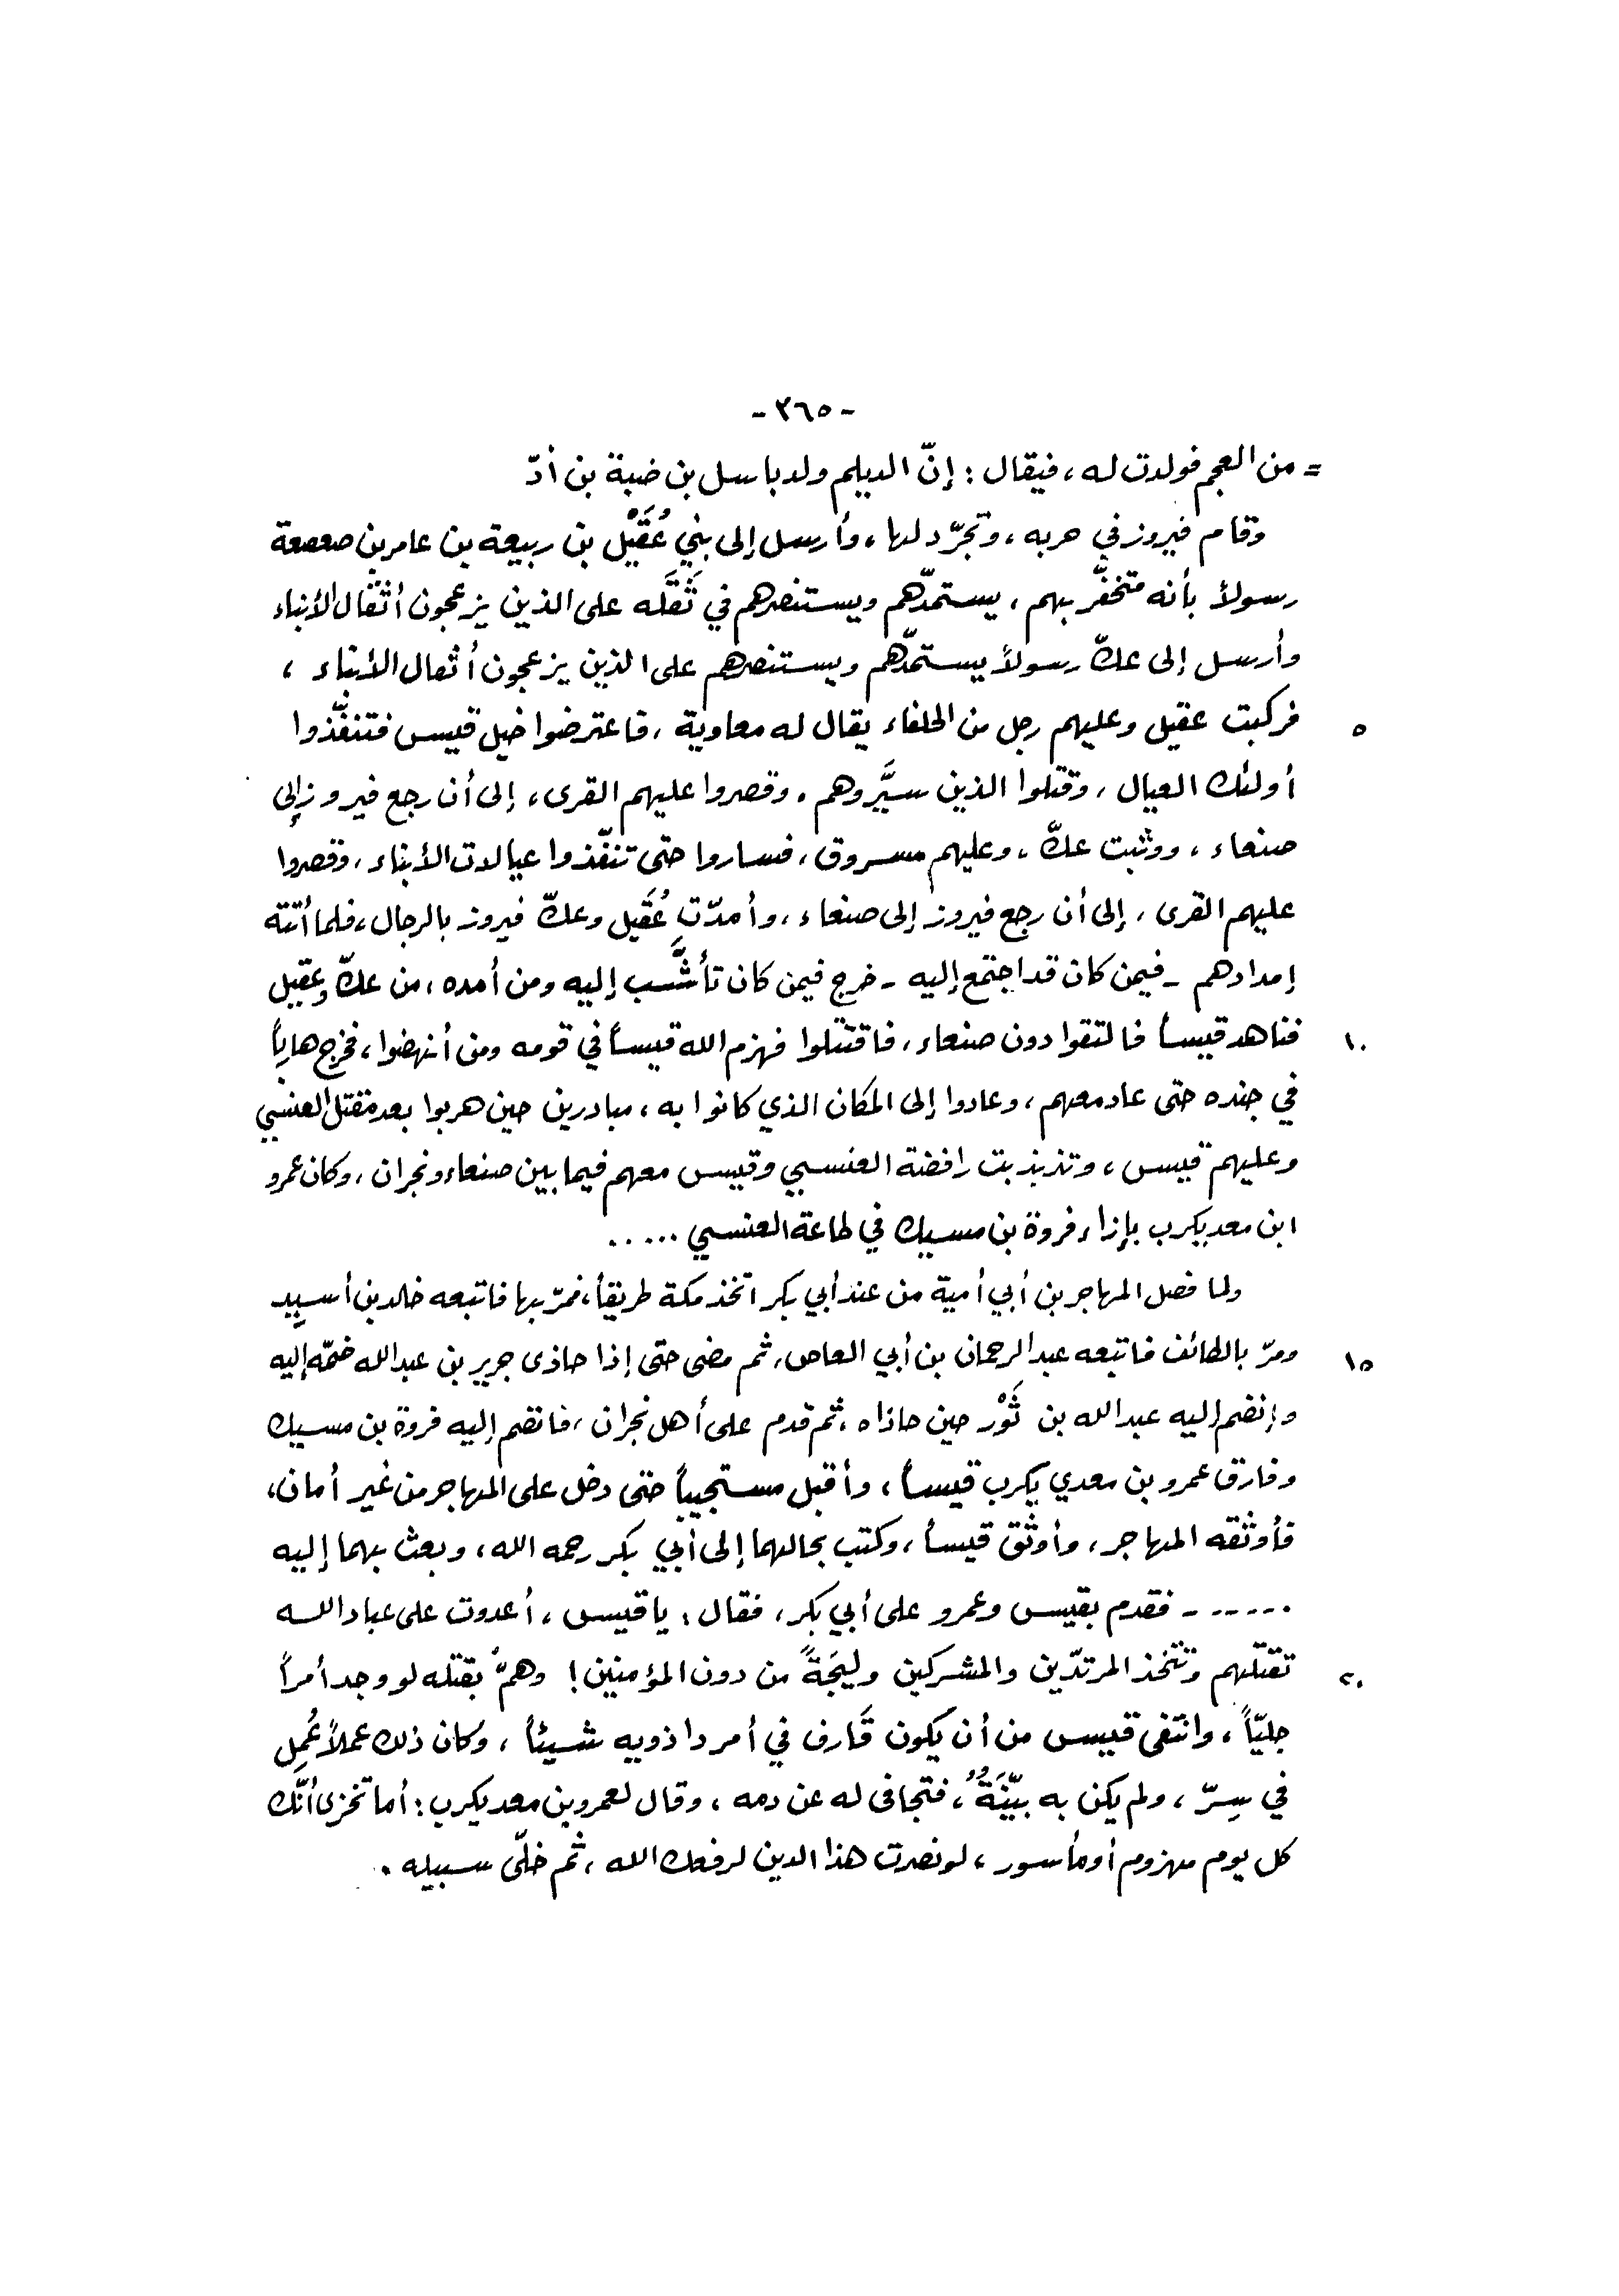 - ٣٦٥ -
= من العجم فولدت له، فيقال: إنّ الديلم ولد باسل بن ضبة بن أدّ
وقام فيروز في حربه، وتجرّد لها، وأرسل إلى بني عُقَيْل بن ربيعة بن عامر بن صعصعة
رسولاً بأنه متخفّر بهم، يستمدّهم ويستنصرهم في ثَقَله على الذين يزعجون أثقال الأبناء
وأرسل إلى عكّ رسولاً يستمدّهم ويستنصرهم على الذين يزعجون أثقال الأبناء،
٥ فركبت عقيل وعليهم رجل من الحلفاء يقال له معاوية، فاعترضوا خيل قيس فتنفّذوا
أولئك العيال، وقتلوا الذين سيَّروهم، وقصروا عليهم القرى، إلى أن رجع فيروز إلى
صنعاء، ووثبت عكّ، وعليهم مسروق، فساروا حتى تنفّذوا عيالات الأبناء، وقصروا
عليهم القرى، إلى أن رجع فيروز إلى صنعاء، وأمدّت عُقَيل وعكّ فيروز بالرجال، فلما أتته
إمدادهم - فيمن كان قد اجتمع إليه - خرج فيمن كان تأشَّب إليه ومن أمده، من عكّ وعقيل
١٠ فناهد قيساً فالتقوا دون صنعاء، فاقتتلوا فهزم الله قيساً في قومه ومن أنهضوا، فخرج هارباً
في جنده حتى عاد معهم، وعادوا إلى المكان الذي كانوا به، مبادرين حين هربوا بعد مقتل العنسي
وعليهم قيس، وتذبذبت رافضة العنسي وقيس معهم فيما بين صنعاء ونجران، وكان عمرو
ابن معد يكرب بإزاء فروة بن مسيك في طاعة العنسي .....
ولما فصل المهاجر بن أبي أمية من عند أبي بكر اتخذ مكة طريقاً، فمرّ بها فاتبعه خالد بن أسيد
١٥ ومرّ بالطائف فاتبعه عبد الرحمان بن أبي العاص، ثم مضى حتى إذا حاذى جرير بن عبد الله ضمّه إليه
وإنضم إليه عبد الله بن ثَوْر حين حاذاه، ثم قدم على أهل نجران، فانضم إليه فروة بن مسيك
وفارق عمرو بن معدي يكرب قيساً، وأقبل مستجيباً حتى دخل على المهاجر من غير أمان،
فأوثقه المهاجر، وأوثق قيساً، وكتب بحالهما إلى أبي بكر رحمه الله، وبعث بهما إليه
...... فقدم بقيس وعمرو على أبي بكر، فقال: يا قيس، أعدوت على عباد الله
٢٠ تقتلهم وتتخذ المرتدّين والمشركين وليجَةً من دون المؤمنين! وهمّ بقتله لو وجد أمراً
جليّاً، وانتفى قيس من أن يكون قَارف في أمر داذويه شيئاً، وكان ذلك عملاً عُمِل
في سِرّ، ولم يكن به بيّنَةٌ، فتجافى له عن دمه، وقال لعمرو بن معد يكرب: أما تخزى أنَّك
كل يوم مهزوم أو مأسور، لو نصرت هذا الدين لرفعك الله، ثم خلّى سبيله.